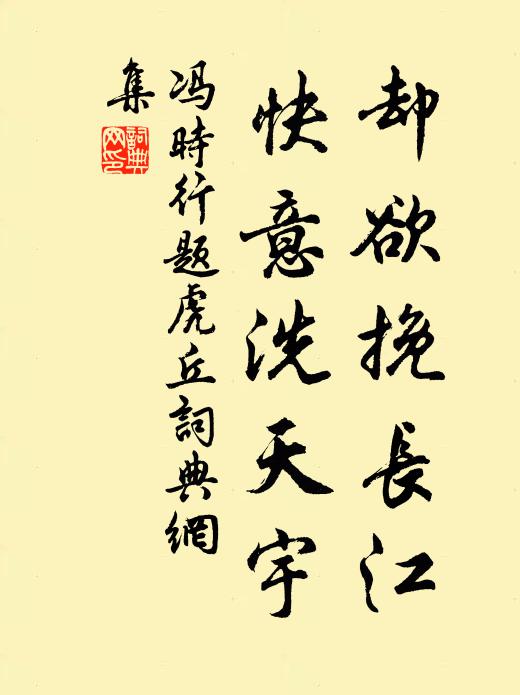 却欲挽長江
快意洗天宇
冯時行題虎丘詞典網
集
詞典
网印